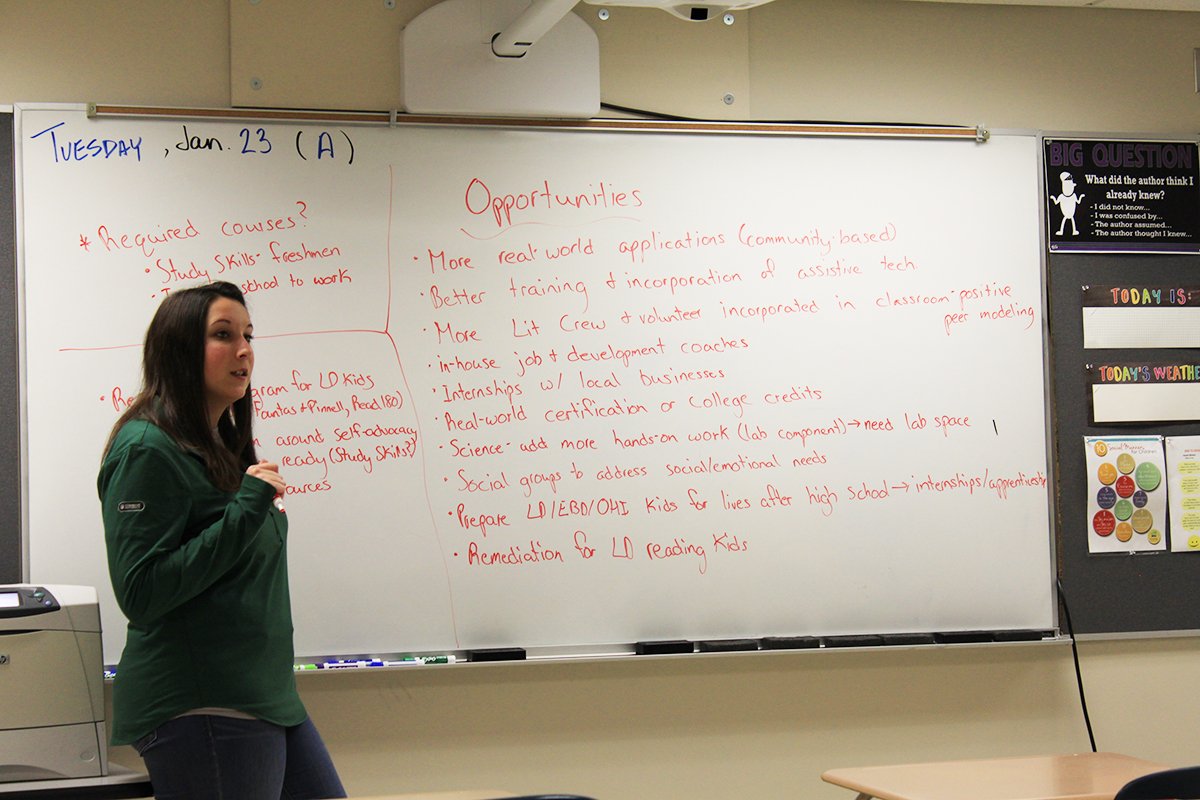 TUESDAY, Jan. 23 (A)
* Required courses?
• Study Skills- freshmen
school to work
gram for LD Kids
Fountas + Pinnell, Read 180)
around self-advocacy
ready (Study Skills?)
Opportunities
• More real-world applications (community-based)
• Better training + incorporation of assistive tech.
• More Lit Crew + volunteer incorporated in classroom- positive
peer modeling
• in-house job + development coaches
• Internships w/ local businesses
• Real-world certification or college credits
• Science- add more hands-on work (lab component) → need lab space
• Social groups to address social/emotional needs
• Prepare LD/EBD/OHI Kids for lives after high school → internships/apprenticeship
• Remediation for LD reading Kids
BIG QUESTION
What did the author think I
already knew?
- I did not know...
- I was confused by...
- The author assumed...
- The author thought I knew...
TODAY IS:
TODAY'S WEATHE
10 Social Manners
for Children
hp
EXPO